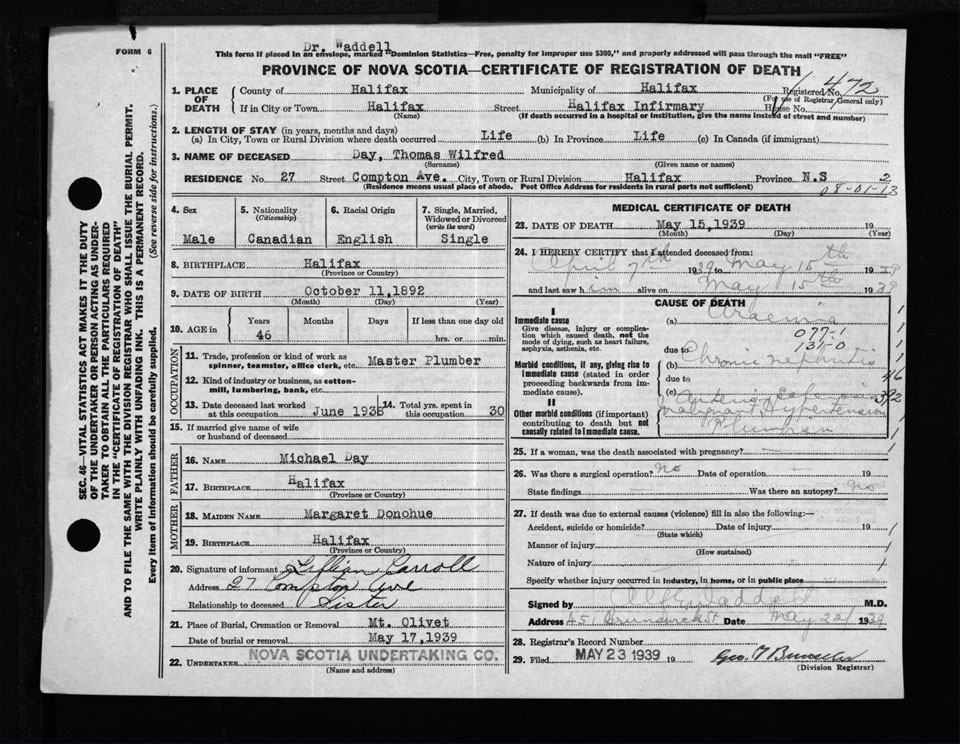 FORM 6
Dr. Waddell
This form if placed in an envelope, marked "Dominion Statistics—Free, penalty for improper use $300," and properly addressed will pass through the mail "FREE"
PROVINCE OF NOVA SCOTIA—CERTIFICATE OF REGISTRATION OF DEATH
SEC. 46—VITAL STATISTICS ACT MAKES IT THE DUTY
OF THE UNDERTAKER OR PERSON ACTING AS UNDER-
TAKER TO OBTAIN ALL THE PARTICULARS REQUIRED
IN THE "CERTIFICATE OF REGISTRATION OF DEATH"
AND TO FILE THE SAME WITH THE DIVISION REGISTRAR WHO SHALL ISSUE THE BURIAL PERMIT.
WRITE PLAINLY WITH UNFADING INK. THIS IS A PERMANENT RECORD.
Every item of information should be carefully supplied. (See reverse side for instructions.)
1. PLACE OF DEATH
County of Halifax Municipality of Halifax Registered No. 472
(For use of Registrar General only)
If in City or Town Halifax Street Halifax Infirmary House No.
(Name) (If death occurred in a hospital or institution, give the name instead of street and number)
2. LENGTH OF STAY (in years, months and days)
(a) In City, Town or Rural Division where death occurred Life (b) In Province Life (c) In Canada (if immigrant)
3. NAME OF DECEASED Day, Thomas Wilfred
(Surname) (Given name or names)
RESIDENCE No. 27 Street Compton Ave. City, Town or Rural Division Halifax Province N.S 2
(Residence means usual place of abode. Post Office Address for residents in rural parts not sufficient) 08-01-13
4. Sex Male
5. Nationality (Citizenship) Canadian
6. Racial Origin English
7. Single, Married, Widowed or Divorced (write the word) Single
8. BIRTHPLACE Halifax
(Province or Country)
9. DATE OF BIRTH October 11,1892
(Month) (Day) (Year)
10. AGE in Years 46 Months Days If less than one day old hrs. or min.
OCCUPATION
11. Trade, profession or kind of work as spinner, teamster, office clerk, etc. Master Plumber
12. Kind of industry or business, as cotton-mill, lumbering, bank, etc.
13. Date deceased last worked at this occupation June 1938 14. Total yrs. spent in this occupation 30
15. If married give name of wife or husband of deceased
FATHER
16. NAME Michael Day
17. BIRTHPLACE Halifax
(Province or Country)
MOTHER
18. MAIDEN NAME Margaret Donohue
19. BIRTHPLACE Halifax
(Province or Country)
20. Signature of informant Lillian Carroll
Address 27 Compton Ave
Relationship to deceased Sister
21. Place of Burial, Cremation or Removal Mt. Olivet
Date of burial or removal May 17,1939
22. UNDERTAKER NOVA SCOTIA UNDERTAKING CO.
(Name and address)
MEDICAL CERTIFICATE OF DEATH
23. DATE OF DEATH May 15,1939 19
(Month) (Day) (Year)
24. I HEREBY CERTIFY that I attended deceased from:
April 7th 1939 May 15th 1939
and last saw him alive on May 15th 1939
CAUSE OF DEATH
I
Immediate cause (a) Uraemia
Give disease, injury or complication which caused death, not the mode of dying, such as heart failure, asphyxia, asthenia, etc.
077-1
131-0
due to
Morbid conditions, if any, giving rise to immediate cause (stated in order proceeding backwards from immediate cause). (b) Chronic nephritis
due to 46
(c) 392
II
Other morbid conditions (if important) contributing to death but not causally related to immediate cause.
Malignant Hypertension
25. If a woman, was the death associated with pregnancy?
26. Was there a surgical operation? No Date of operation 19
State findings Was there an autopsy? No
27. If death was due to external causes (violence) fill in also the following:—
Accident, suicide or homicide? Date of injury 19
(State which)
Manner of injury
(How sustained)
Nature of injury
Specify whether injury occurred in Industry, in home, or in public place
Signed by Waddell M.D.
Address 451 Brunswick St Date May 22/ 1939
28. Registrar's Record Number
29. Filed MAY 23 1939 19 Geo.
(Division Registrar)